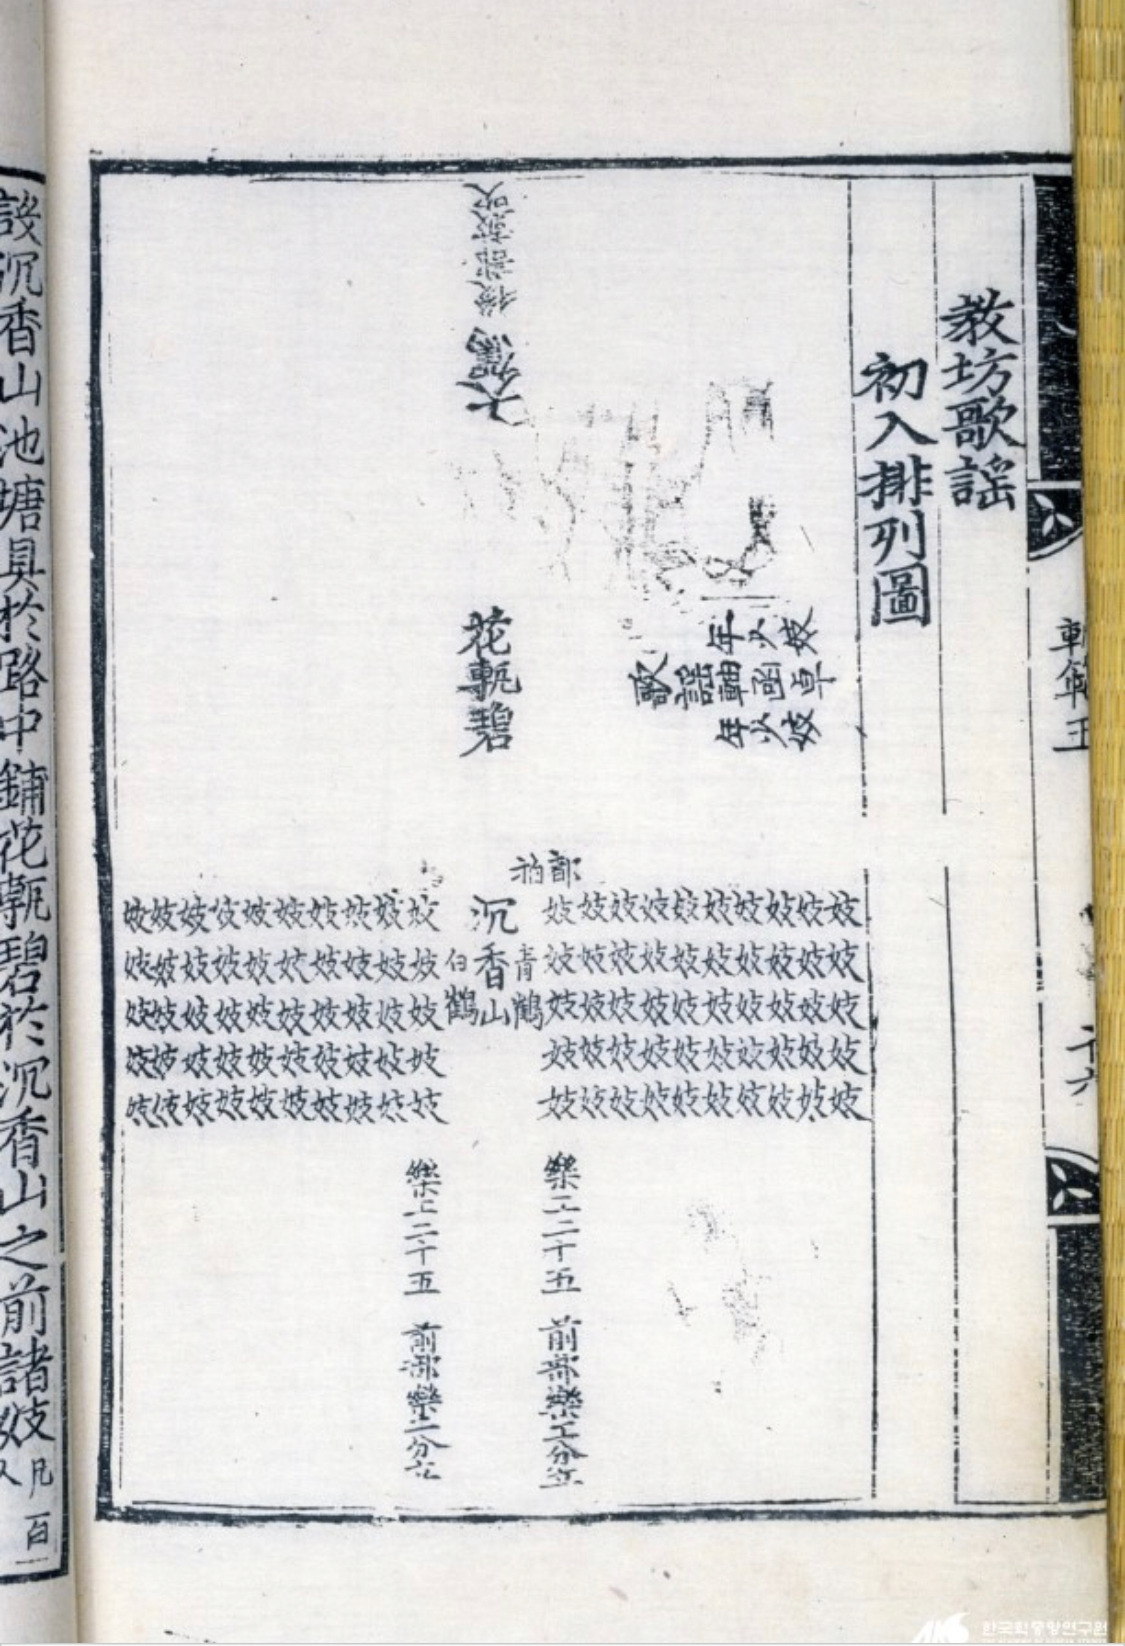 軌範五
教坊歌謠
初入排列圖
年少妓
歌謠軸函卓
年少妓
妓妓妓妓妓
妓妓妓妓妓
妓妓妓妓妓
妓妓妓妓妓
妓妓妓妓妓
妓妓妓妓妓
妓妓妓妓妓
妓妓妓妓妓
妓妓妓妓妓
妓妓妓妓妓
樂工二十五 前部樂工分立
青鶴
大駕 後部鼓吹
花甎碧
沉香山
白鶴
妓妓妓妓妓
妓妓妓妓妓
妓妓妓妓妓
妓妓妓妓妓
妓妓妓妓妓
妓妓妓妓妓
妓妓妓妓妓
妓妓妓妓妓
妓妓妓妓妓
妓妓妓妓妓
樂工二十五 前部樂工分立
設沉香山池塘具於路中鋪花甎碧於沉香山之前諸妓凡百
한국학중앙연구원